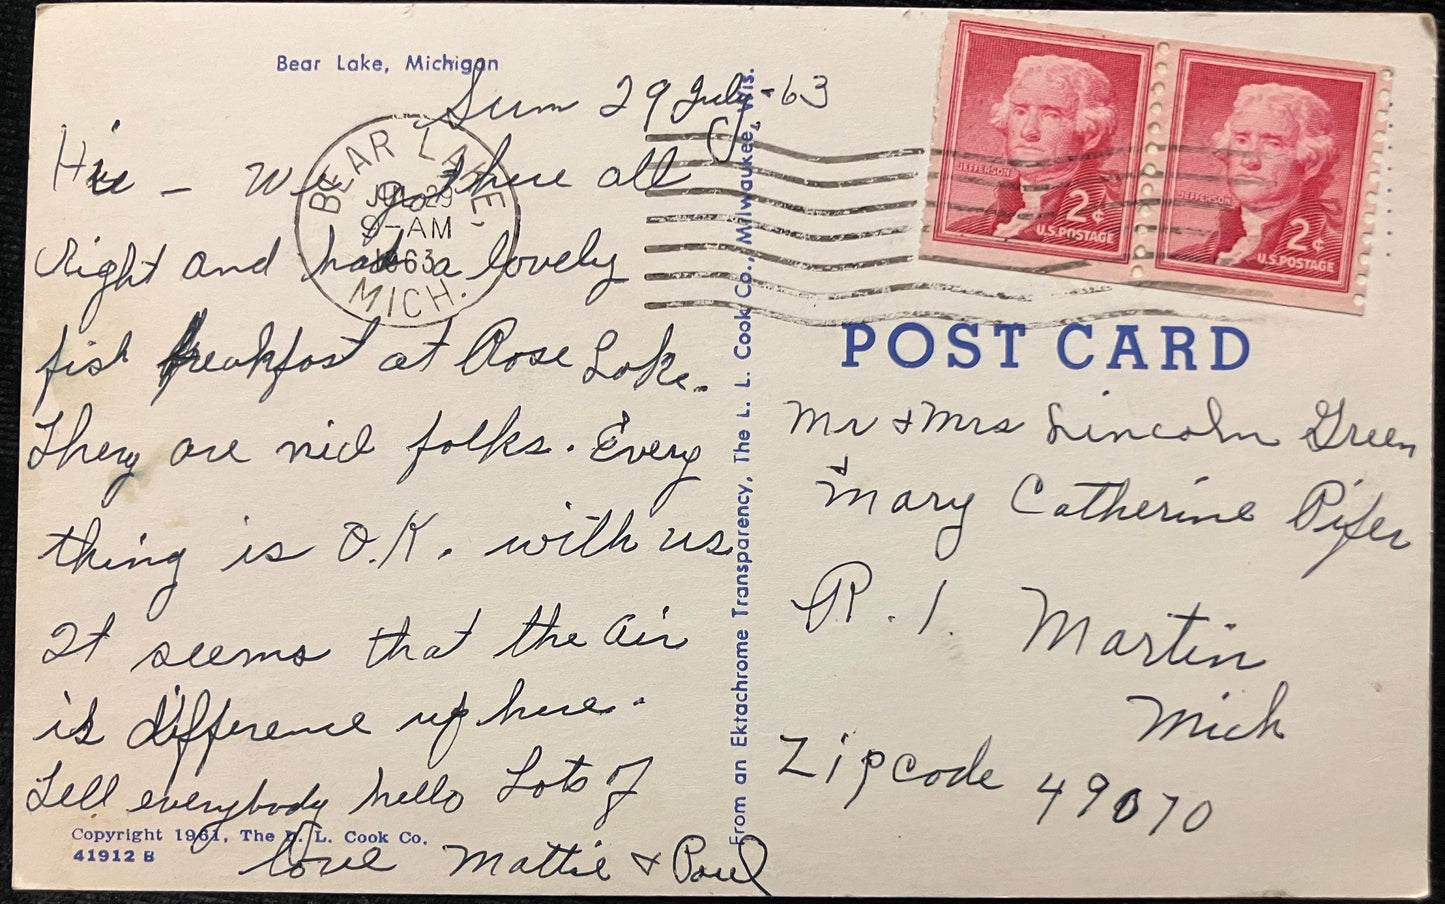 Bear Lake, Michigan
Sun 29 July-63
Hi — We got here all
right and had a lovely
fish breakfast at Rose Lake.
They are nice folks. Every
thing is O.K. with us
It seems that the air
is difference up here.
Tell everybody hello Lots of
love Mattie & Paul
Copyright 1961, The L. L. Cook Co.
41912 B
BEAR LAKE,
JUL 29
9-AM
1963
MICH.
From an Ektachrome Transparency, The L. L. Cook Co., Milwaukee, Wis.
JEFFERSON
2¢
U.S. POSTAGE
JEFFERSON
2¢
U.S. POSTAGE
POST CARD
Mr & Mrs Lincoln Green
& Mary Catherine Pifer
R. 1. Martin
Mich
Zipcode 49070